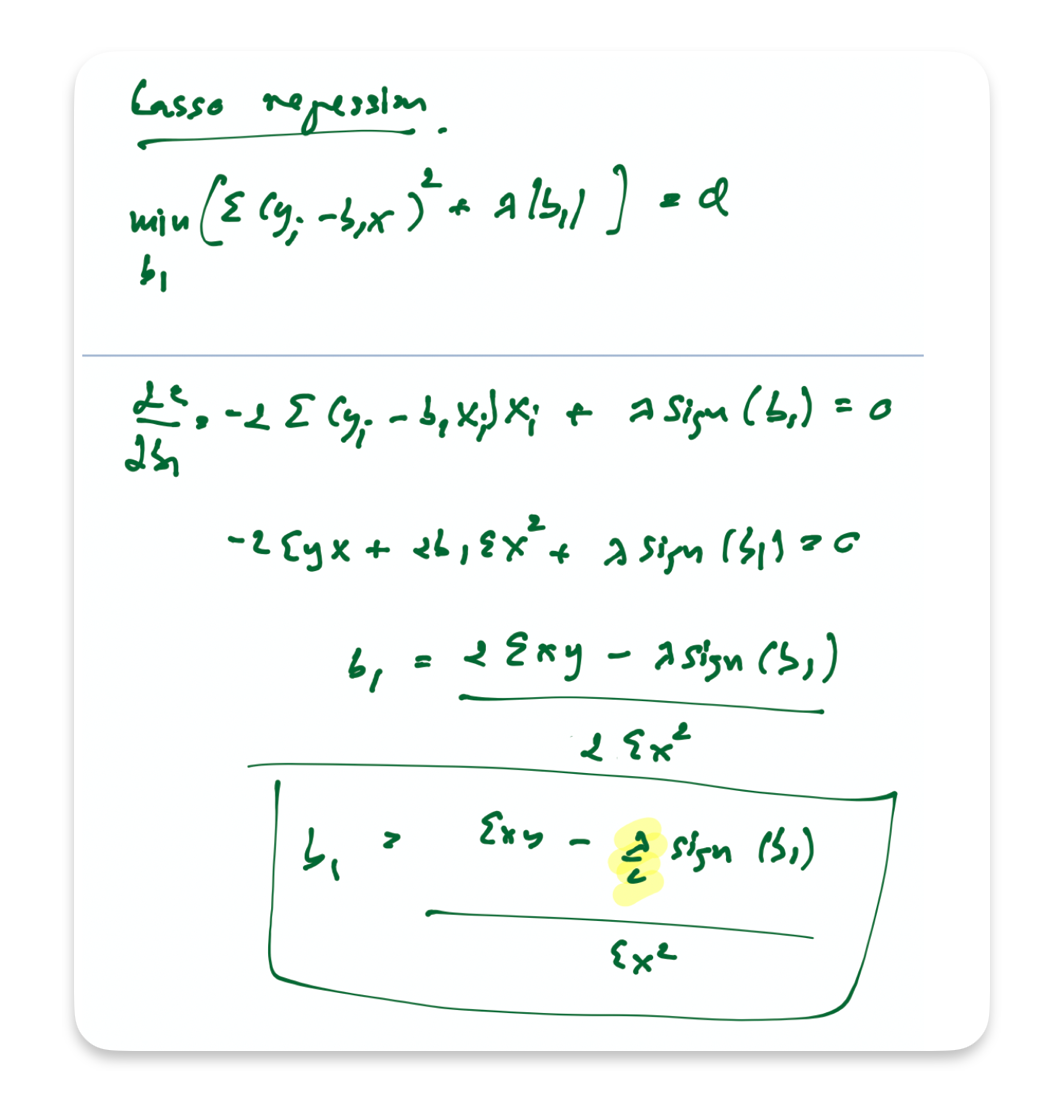 Lasso regression.
min [Σ (yᵢ - b₁x)² + λ|b₁|] = α
b₁
∂e/∂b₁ = -2 Σ (yᵢ - b₁xᵢ)xᵢ + λ sign (b₁) = 0
-2 Σyx + 2b₁Σx² + λ sign (b₁) = 0
b₁ = 2 Σxy - λ sign (b₁)
2 Σx²
b₁ = Σxy - λ/2 sign (b₁)
Σx²